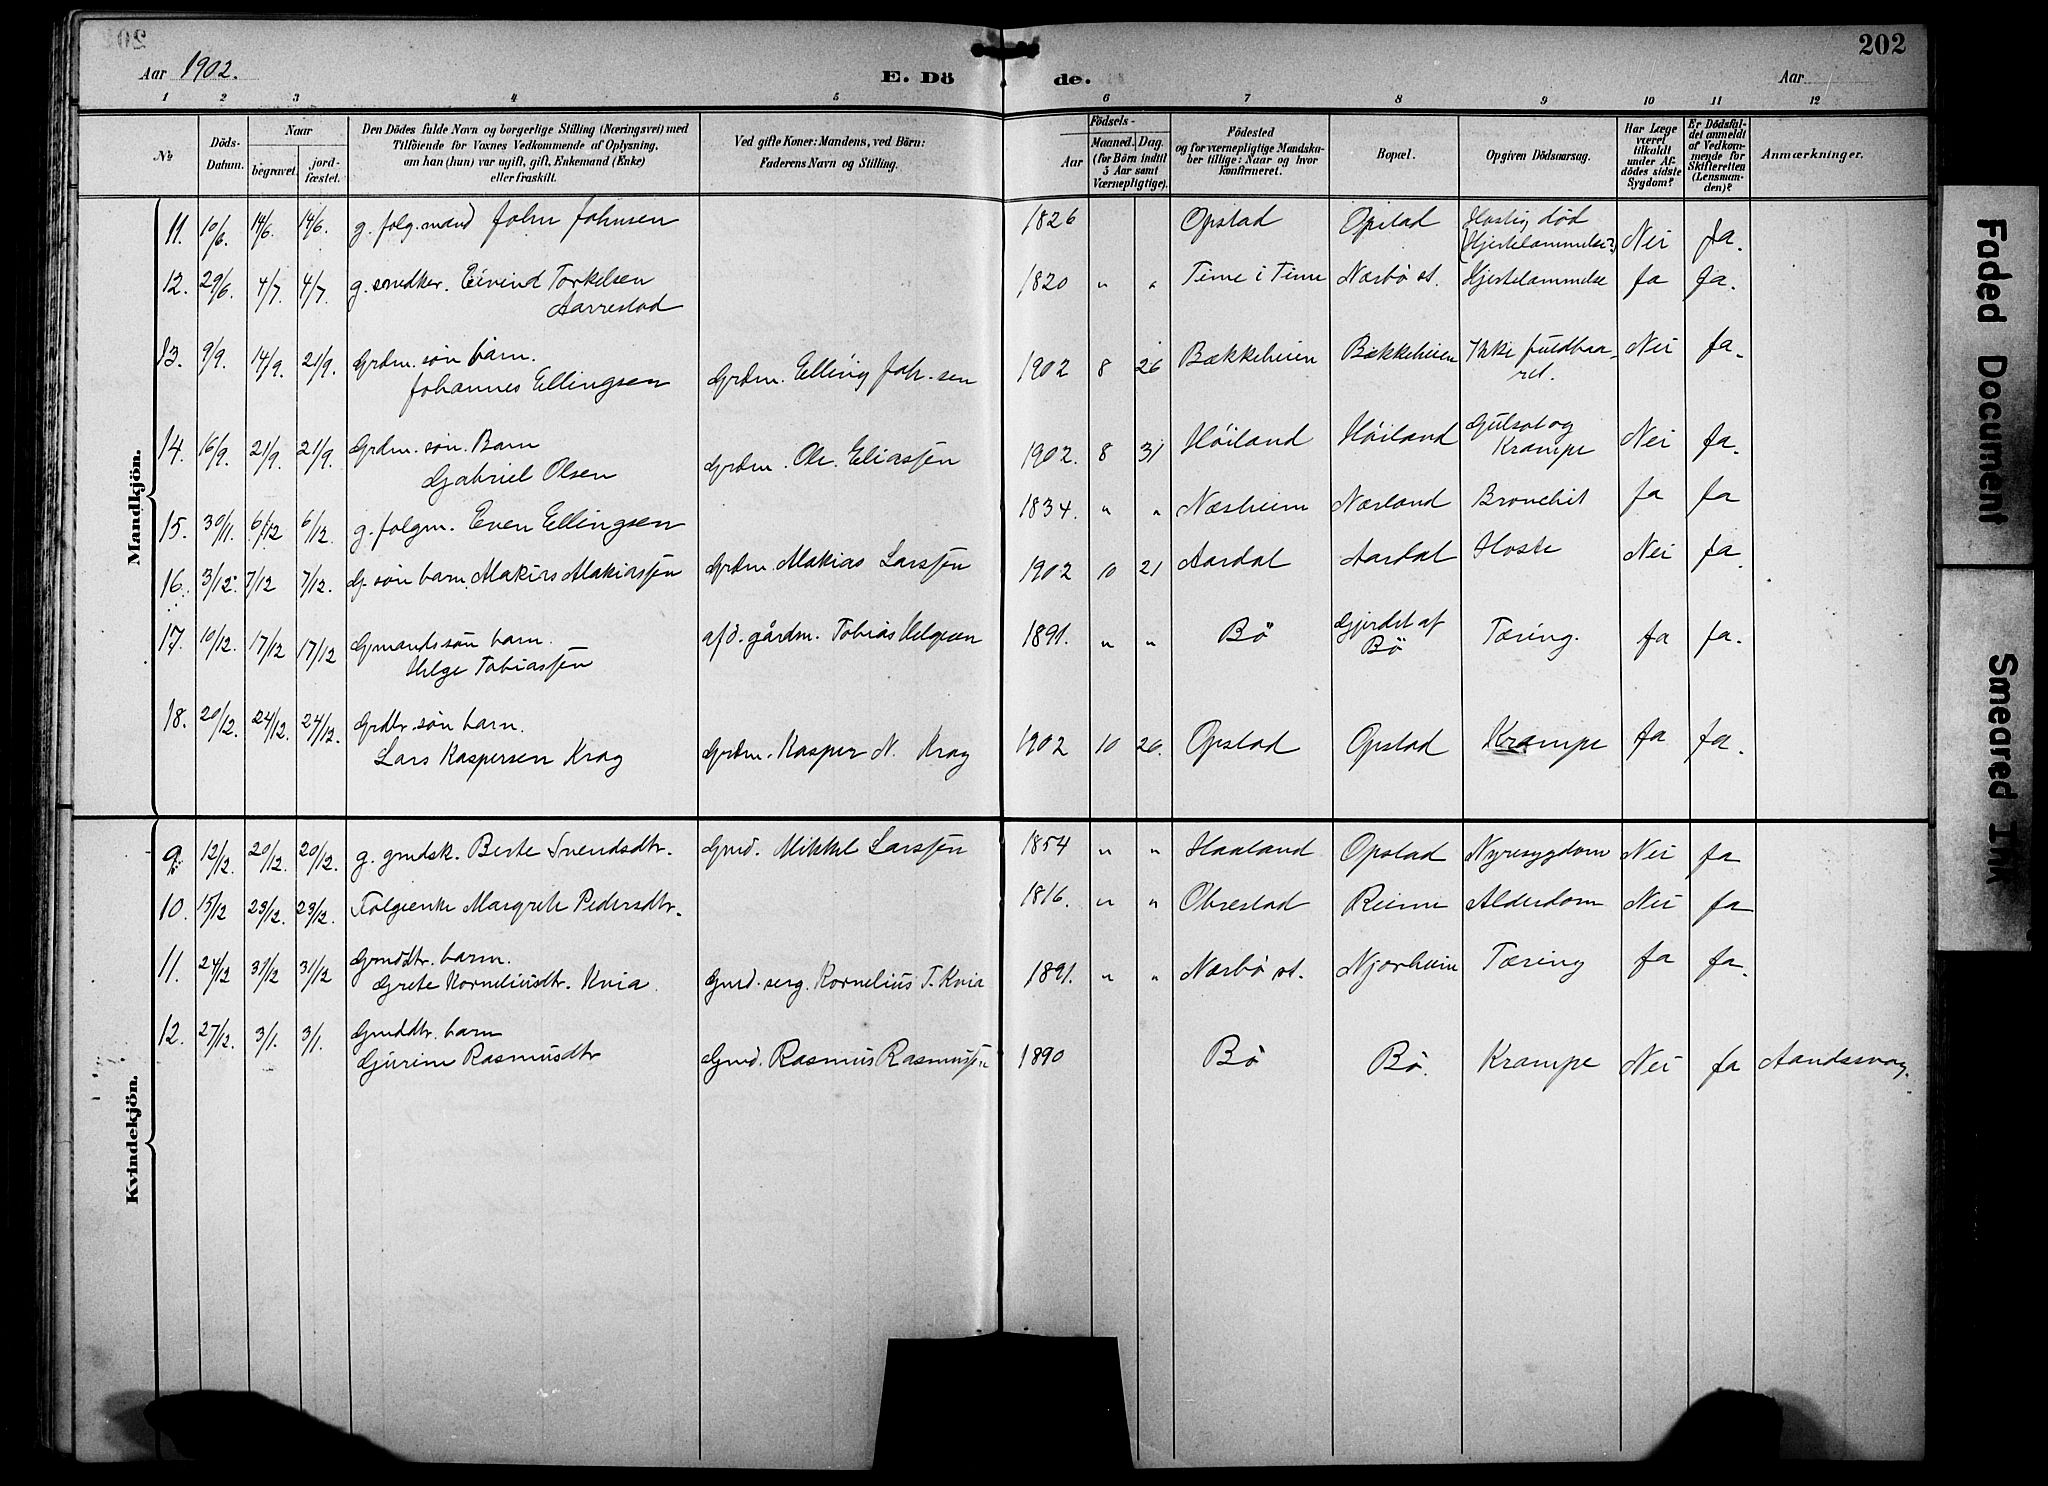 202
Aar 1902.
E. Dö de.
Aar
1 2 3 4 5 6 7 8 9 10 11 12
No.
Döds-Datum.
Naar
begravet.
jord-fæstet.
Den Dödes fulde Navn og borgerlige Stilling (Næringsvei) med
Tilföiende for Voxnes Vedkommende af Oplysning,
om han (hun) var ugift, gift, Enkemand (Enke)
eller fraskilt.
Ved gifte Koner: Mandens, ved Börn:
Faderens Navn og Stilling.
Födsels-
Aar
Maaned. Dag.
(for Börn indtil
5 Aar samt
Værnepligtige).
Födested
og for værnepligtige Mandska-
ber tillige: Naar og hvor
konfirmeret.
Bopæl.
Opgiven Dödsaarsag.
Har Læge
været
tilkaldt
under Af-
dödes sidste
Sygdom?
Er Dödsfal-
det anmeldt
af Vedkom-
mende for
Skifteretten
(Lensman-
den)?
Anmærkninger.
Mandkjön.
11. 10/6. 14/6. 14/6. g. folg.mand John Johnsen 1826 Opstad Opstad Hastig död (Hjertelammelse?) Nei Ja.
12. 29/6. 4/7. 4/7. g. snedker. Eivind Torkelsen Aarrestad 1820 " " Time i Time Nærbö st. Hjertelammelse Ja Ja.
13. 9/9. 14/9. 21/9. Grdm. sön barn. Johannes Ellingsen Grdm. Elling Joh.sen 1902 8 26 Bækkeheien Bækkeheien Ikke fuldbaaret. Nei Ja.
14. 16/9. 21/9. 21/9. Grdm. sön. Barn Gabriel Olsen Grdm. Ole Eliassen 1902. 8 31 Höiland Höiland Gulsot og Krampe Nei Ja.
15. 30/11. 6/12 6/12. g. folgm. Even Ellingsen 1834. " " Næsheim Nærland Bronchit Ja Ja
16. 3/12. 7/12 7/12. G. sön barn Makias Makiassen Grdm. Makias Larssen 1902 10 21 Aardal Aardal Hoste Nei Ja.
17. 10/12. 17/12 17/12 Gmands sön barn. Helge Tobiassen afd. gårdm. Tobias Helgesen 1891. " " Bö Gjerdet af Bö Tæring. Ja Ja.
18. 20/12. 24/12. 24/12. Grdbr. sön barn. Lars Kaspersen Krag Grdm. Kasper N. Krag 1902 10 26. Opstad Opstad Krampe Ja Ja.
Kvindekjön.
9. 12/12. 20/12. 20/12. g. gmdsk. Berte Svendsdtr. Gmd. Mikkel Larssen 1854 " " Haaland Opstad Nyresygdom Nei Ja
10. 15/12 23/12. 23/12. Folgienke Margrete Pedersdtr. 1816. " " Obrestad Reime Alderdom Nei Ja
11. 24/12 31/12 31/12 Gmddtr. barn. Grete Korneliusdtr. Kvia Gmd. serg. Kornelius T. Kvia 1891. " " Nærbö st. Njærheim Tæring Ja Ja.
12. 27/12. 3/1. 3/1. Gmddtr. barn Gjurine Rasmusdtr Gmd. Rasmus Rasmussen 1890 Bö Bö. Krampe Nei Ja Aandssvag.
Faded Document
Smeared Ink